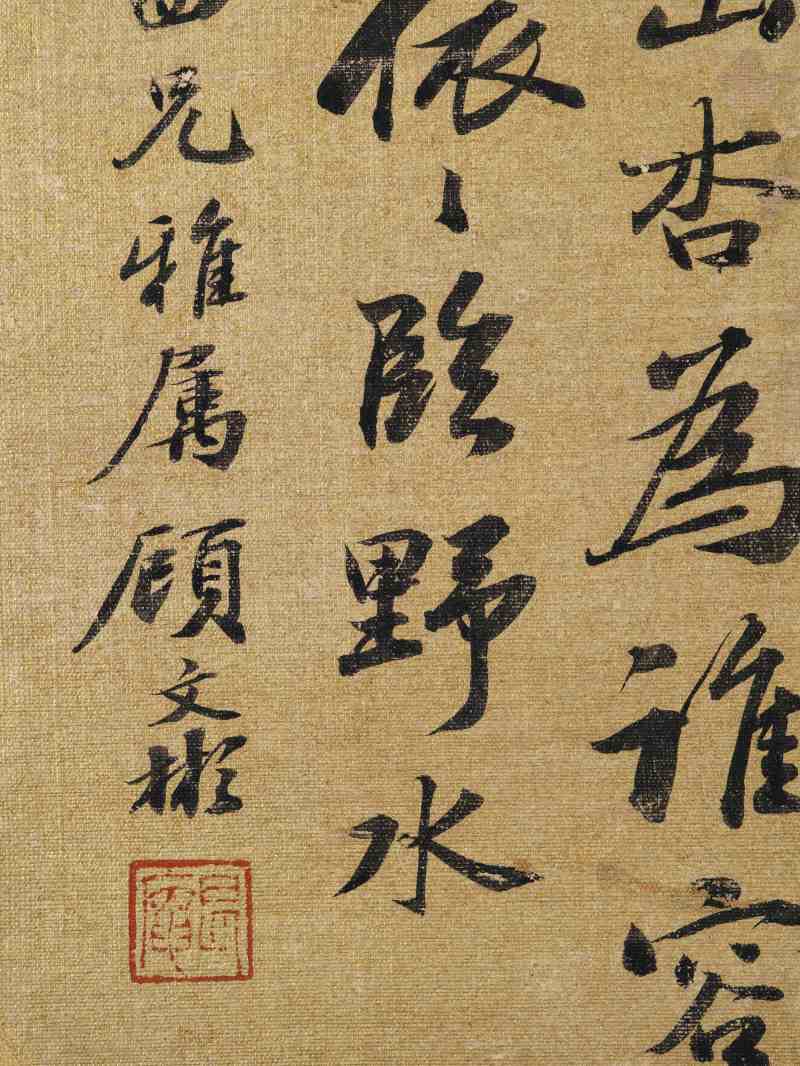 山杏為誰容
依〻臨野水
兄雅属顧文彬